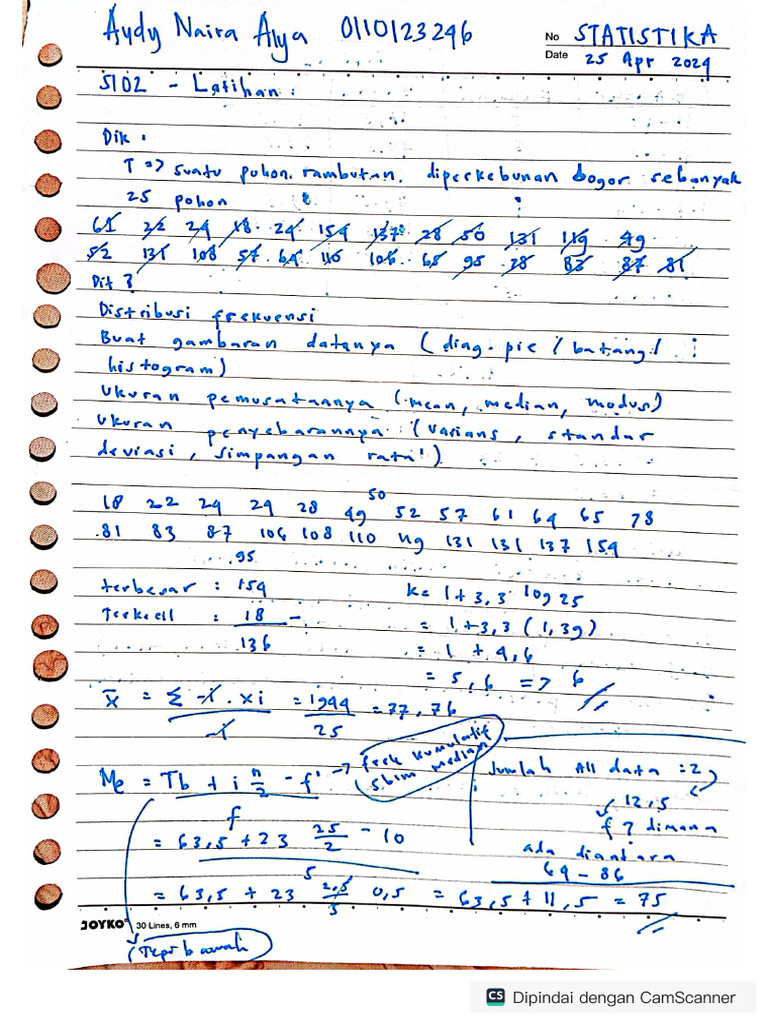 Aydy Naira Alya 0110123246
No STATISTIKA
Date 25 Apr 2024
SI02 - Latihan :
Dik :
T => suatu pohon rambutan diperkebunan bogor sebanyak
25 pohon
61 22 24 18 24 154 137 28 50 131 119 49
52 131 108 57 64 110 106 65 95 78 83 87 81
Dit ?
Distribusi frekuensi
Buat gambaran datanya ( diag. pie / batang /
histogram )
Ukuran pemusatannya ( mean, median, modus )
Ukuran penyebarannya : ( varians , standar
deviasi , simpangan rata² ).
18 22 24 24 28 49 50 52 57 61 64 65 78
81 83 87 95 106 108 110 119 131 131 137 154
terbesar : 154
Terkecil : 18 -
136
k = 1 + 3,3 log 25
= 1 + 3,3 ( 1,39 )
= 1 + 4,6
= 5,6 => 6
x̄ = Σ f . xi / f = 1944 / 25 = 77,76
Me = Tb + i n/2 - f' / f -> frek kumulatif
sblm median
Jumlah All data : 2
12,5
f ? dimana
ada diantara
64 - 86
= 63,5 + 23 25/2 - 10 / 5
= 63,5 + 23 2,5/5 0,5 = 63,5 + 11,5 = 75
JOYKO 30 Lines, 6 mm
Tepi bawah
CS Dipindai dengan CamScanner